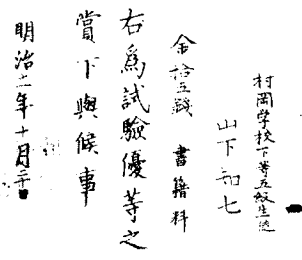 村岡学校下等五級生徒
山下知七
金拾五錢 書籍料
右為試驗優等之
賞下與候事
明治十一年十月二十